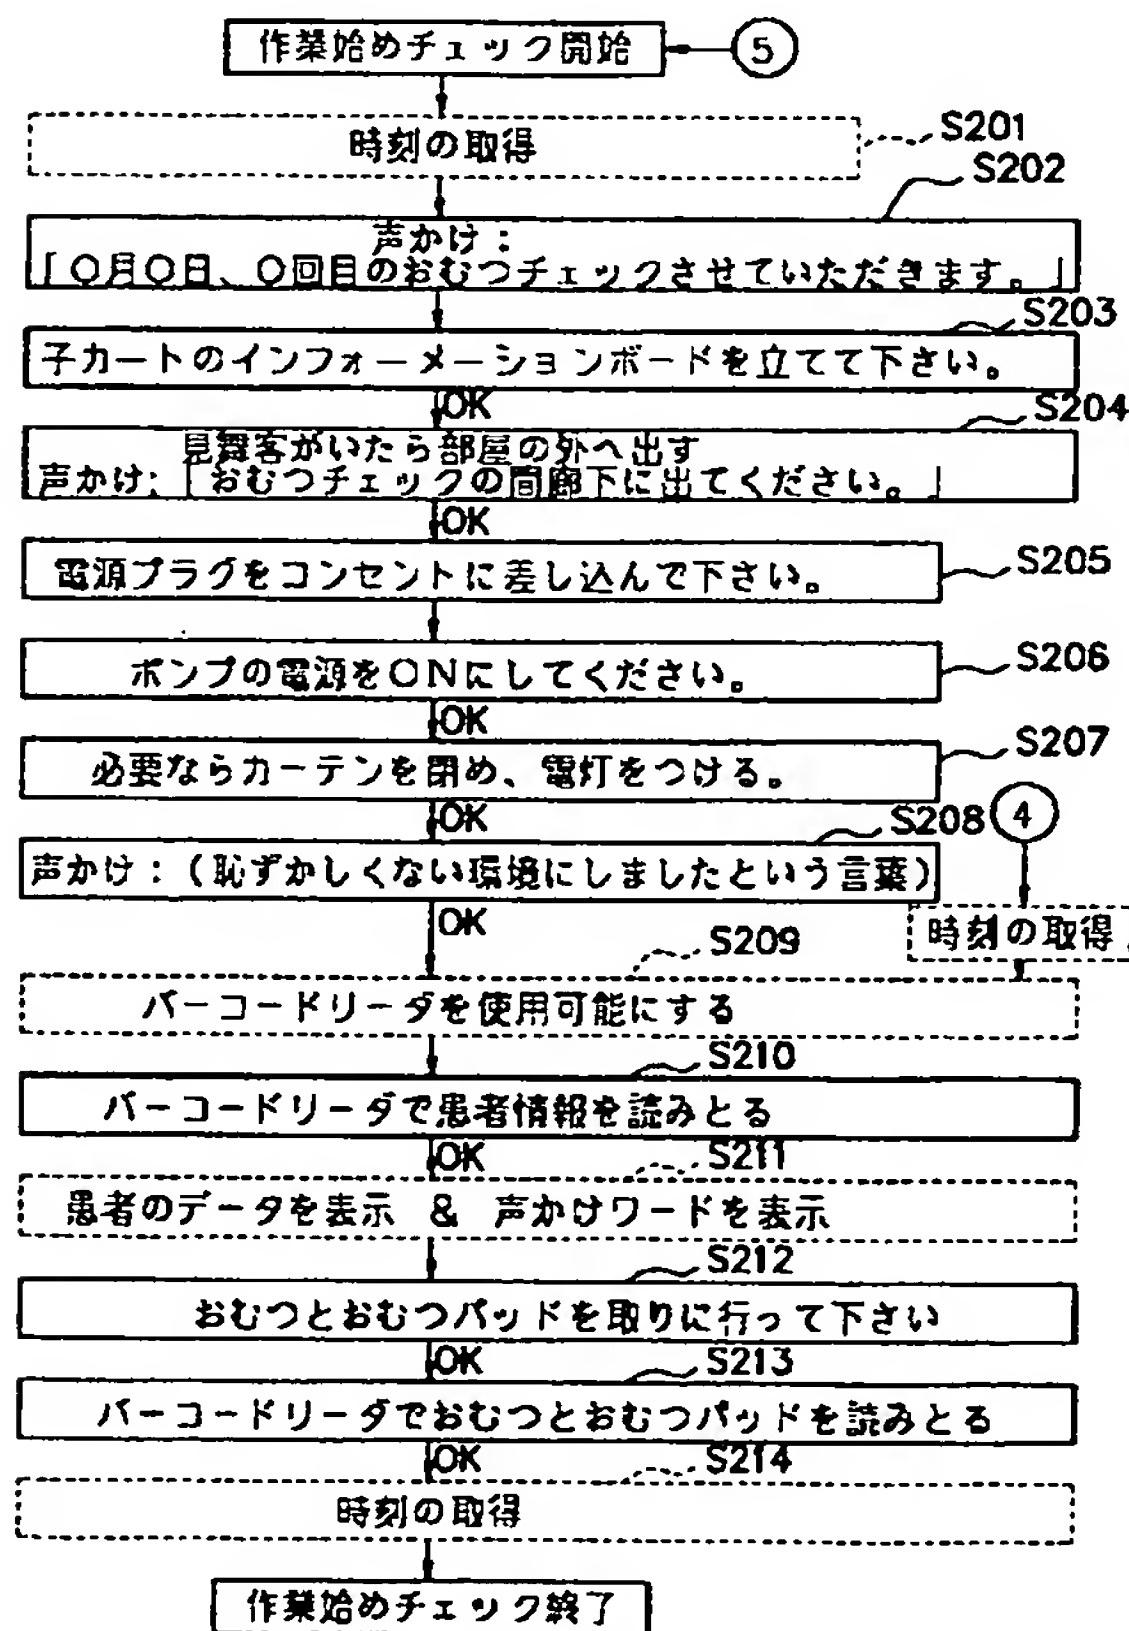 作業始めチェック開始
5
時刻の取得
S201
S202
声かけ：
「〇月〇日、〇回目のおむつチェックさせていただきます。」
S203
子カートのインフォーメーションボードを立てて下さい。
OK
S204
見舞客がいたら部屋の外へ出す
声かけ：「おむつチェックの間廊下に出てください。」
OK
電源プラグをコンセントに差し込んで下さい。
S205
ポンプの電源をONにしてください。
S206
OK
必要ならカーテンを閉め、電灯をつける。
S207
OK
S208
4
声かけ：（恥ずかしくない環境にしましたという言葉）
OK
時刻の取得
S209
バーコードリーダを使用可能にする
S210
バーコードリーダで患者情報を読みとる
OK
S211
患者のデータを表示 & 声かけワードを表示
S212
おむつとおむつパッドを取りに行って下さい
OK
S213
バーコードリーダでおむつとおむつパッドを読みとる
OK
S214
時刻の取得
作業始めチェック終了